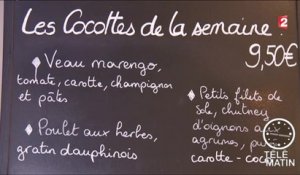 Les Cocottes de la semaine :
9,50€
◆ Veau marengo,
tomate, carotte, champignon
et pâtes
◆ Poulet aux herbes,
gratin dauphinois
◆ Petits filets de
sole, chutney
d'oignons a
agrumes, pu
carotte - coco
2
TÉLÉ
MATIN